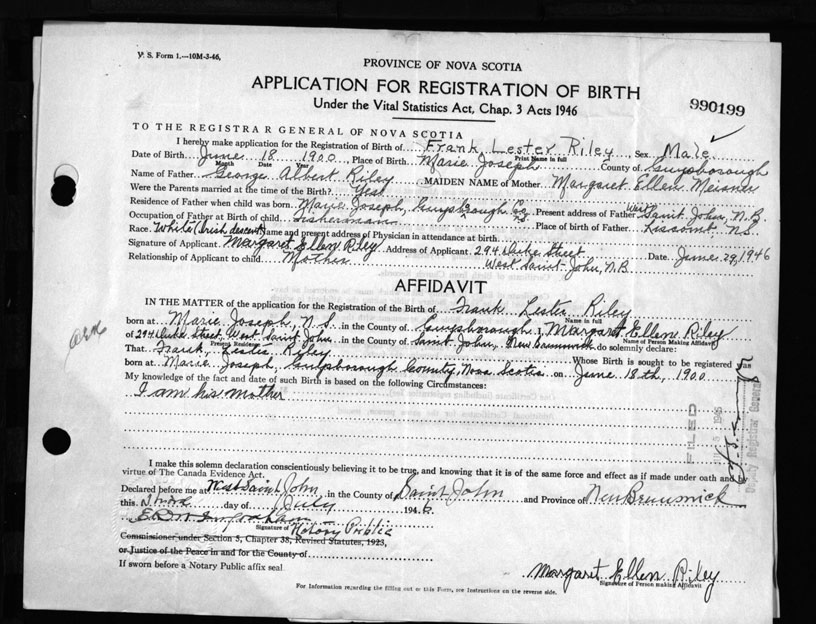 V. S. Form 1.—10M-3-46,
PROVINCE OF NOVA SCOTIA
APPLICATION FOR REGISTRATION OF BIRTH
Under the Vital Statistics Act, Chap. 3 Acts 1946
990199
TO THE REGISTRAR GENERAL OF NOVA SCOTIA
I hereby make application for the Registration of Birth of Frank Lester Riley Sex Male
Print Name in full
Date of Birth June 18 1900 Place of Birth Marie Joseph County of Guysborough
Month Date Year
Name of Father George Albert Riley MAIDEN NAME of Mother Margaret Ellen Meisner
Were the Parents married at the time of the Birth? Yes
Residence of Father when child was born Marie Joseph, Guysborough Co N.S. Present address of Father West Saint John, N.B.
Occupation of Father at Birth of child Fisherman Place of birth of Father Liscomb, N.S.
Race White (Irish descent) Name and present address of Physician in attendance at birth
Signature of Applicant Margaret Ellen Riley Address of Applicant 294 Duke Street Date June 29, 1946
Relationship of Applicant to child Mother West Saint John, N.B.
AFFIDAVIT
IN THE MATTER of the application for the Registration of Birth of Frank Lester Riley
Name in full
born at Marie Joseph, N.S. in the County of Guysborough I, Margaret Ellen Riley
Name of Person Making Affidavit
of 294 Duke Street, West Saint John in the County of Saint John, New Brunswick do solemnly declare:
Present Residence
That Frank Lester Riley Whose Birth is sought to be registered was
born at Marie Joseph, Guysborough County, Nova Scotia on June 18th, 1900
My knowledge of the fact and date of such Birth is based on the following Circumstances:
I am his Mother
FILED
Deputy Registrar General
I make this solemn declaration conscientiously believing it to be true, and knowing that it is of the same force and effect as if made under oath and by
virtue of The Canada Evidence Act.
Declared before me at West Saint John in the County of Saint John and Province of New Brunswick
this Third day of July 1946
Signature of Notary Public
Commissioner under Section 5, Chapter 38, Revised Statutes, 1923,
or Justice of the Peace in and for the County of
If sworn before a Notary Public affix seal
Margaret Ellen Riley
Signature of Person making Affidavit
For Information regarding the filling out of this Form, see Instructions on the reverse side.